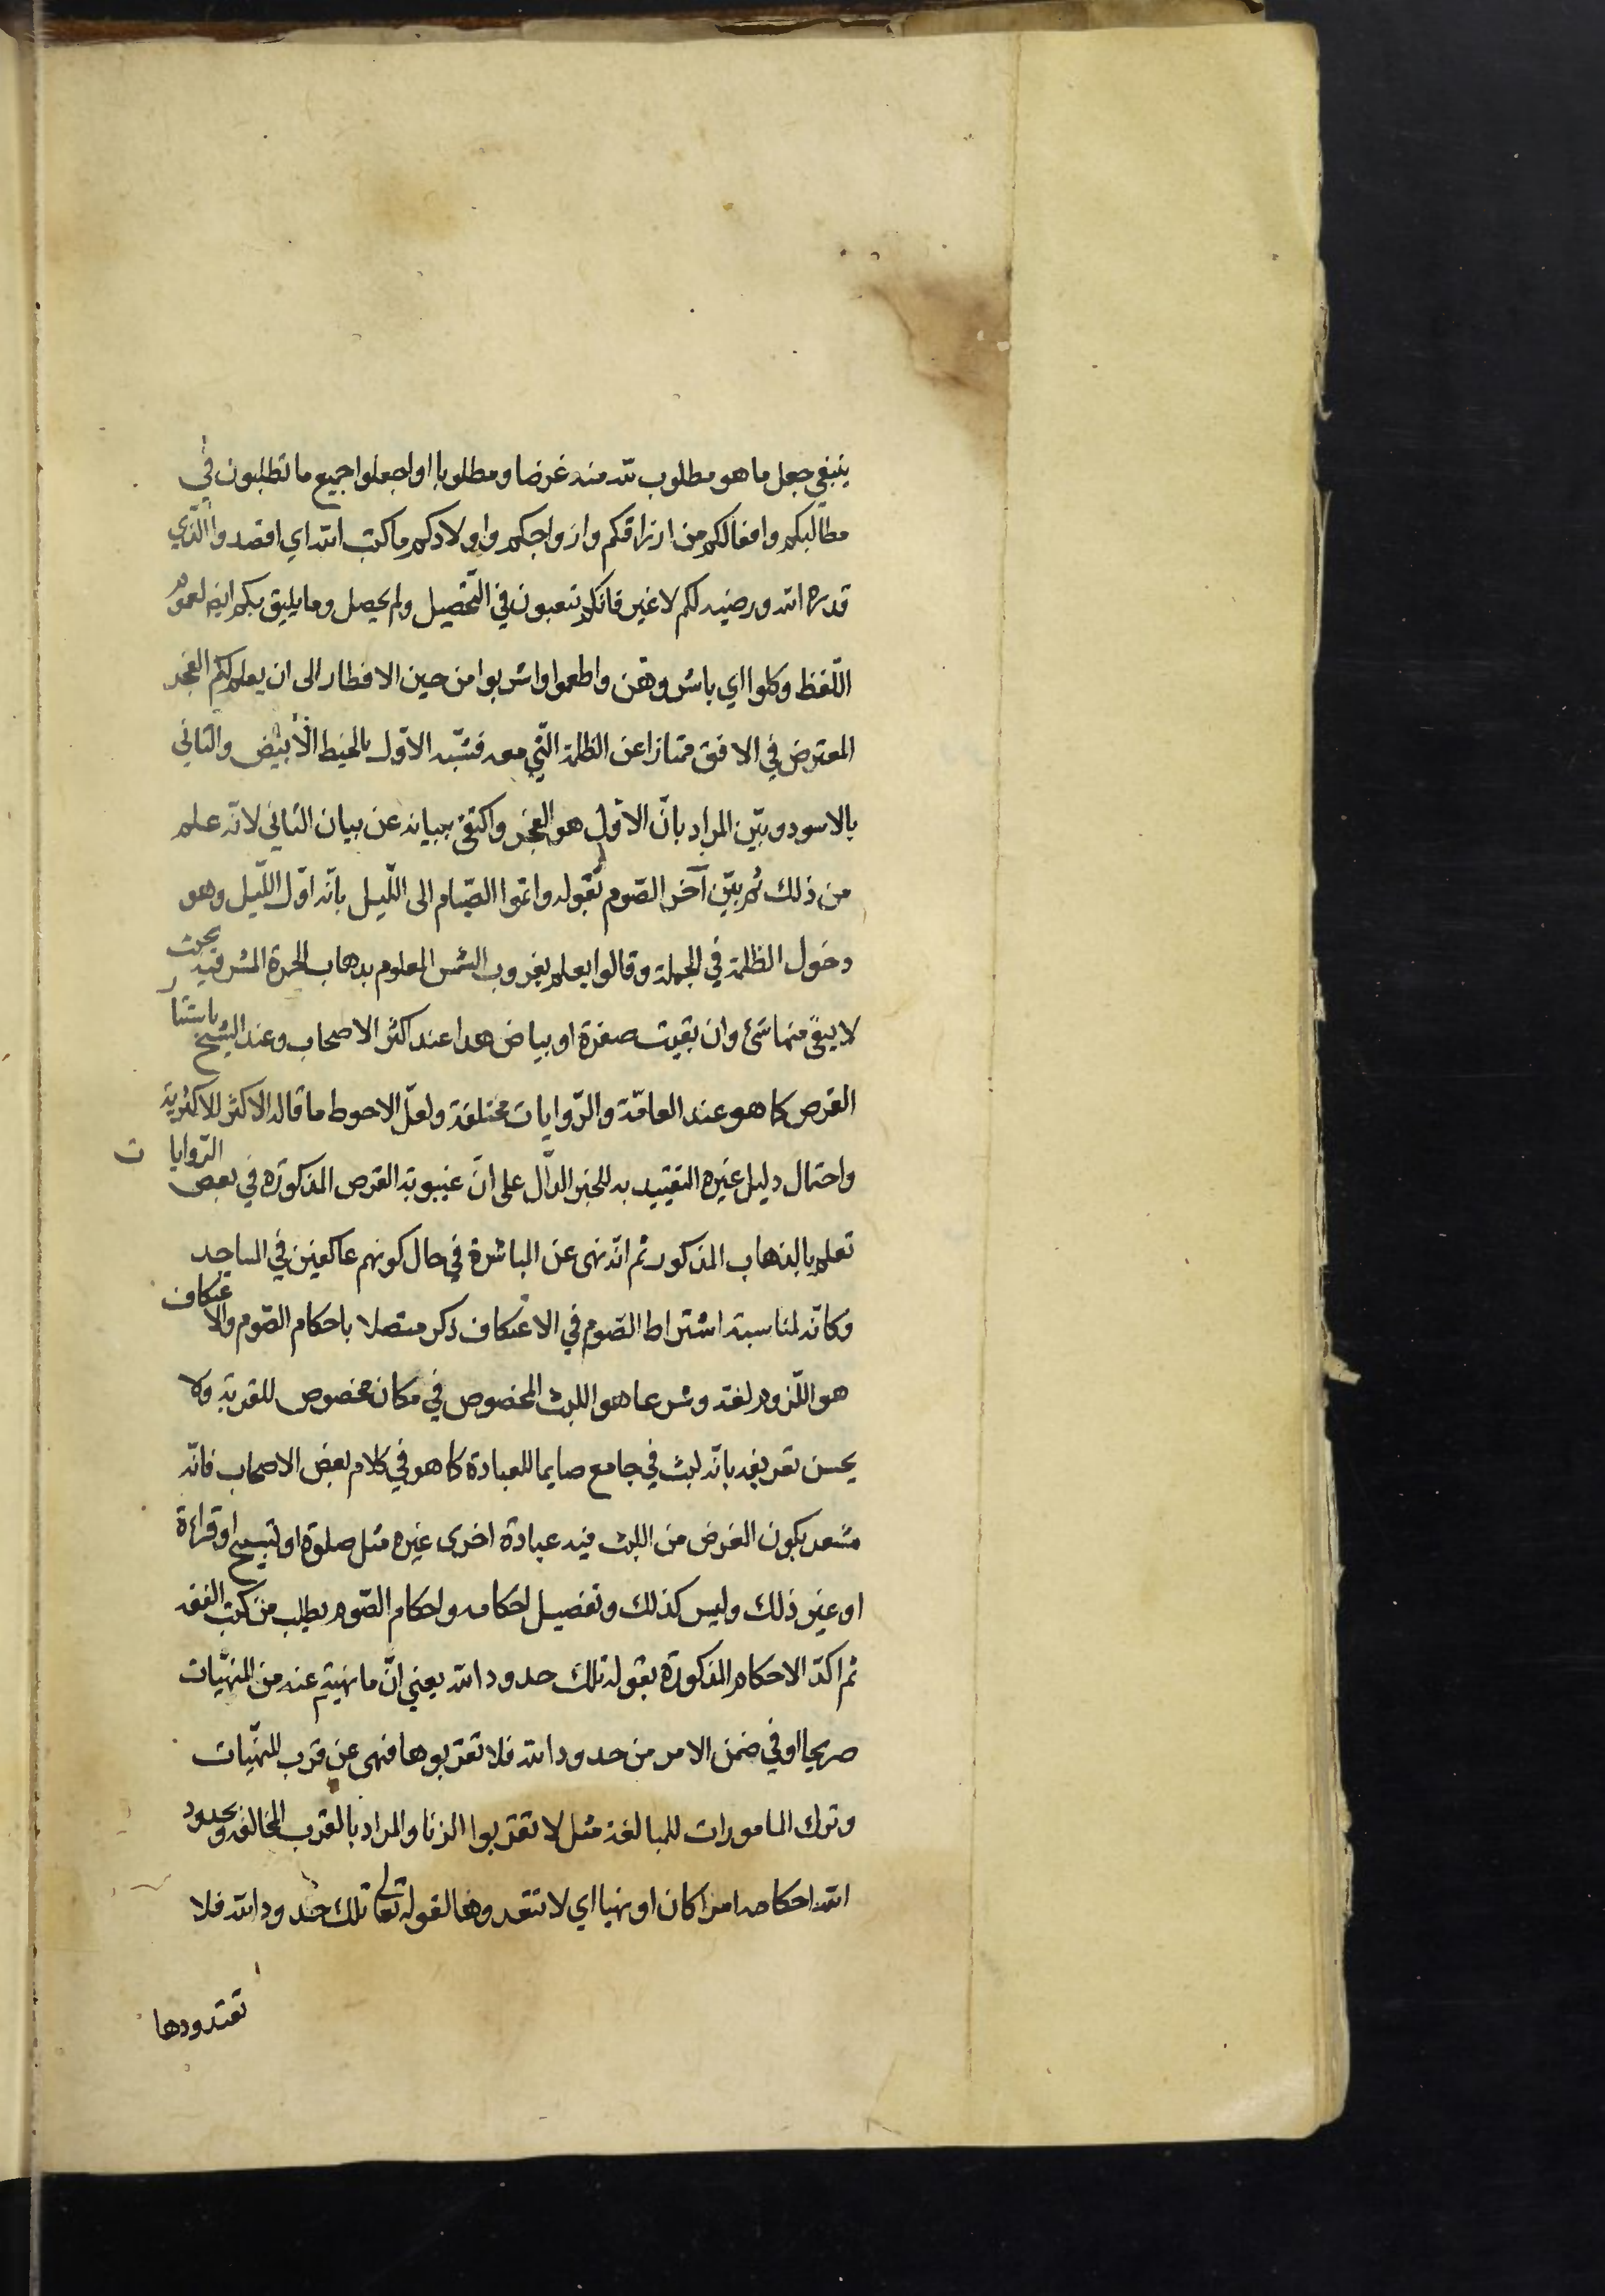 ينبغي جعل ما هو مطلوب لله منه غرضا ومطلوبا او اجعلوا جميع ما تطلبون في
مطالبكم وافعالكم من ارزاقكم وازواجكم واولادكم ما كتب الله اي اقصدوا الذي
قدره الله ورضيه لكم لا غير فانكم تتعبون في التحصيل ولم يحصل وما يليق بكم ايضا لعموم
اللفظ وكلوا اي باشروهن واطعموا واشربوا من حين الافطار الى ان يعلم لكم الفجر
المعترض في الافق ممتازا عن الظلمة التي معه فشبه الاول بالخيط الابيض والثاني
بالاسود وبيّن المراد بانّ الاول هو الفجر واكتفى ببيانه عن بيان الثاني لانه علم
من ذلك ثم بيّن آخر الصوم بقوله واتموا الصيام الى الليل بانّه اوّل الليل وهو
دخول الظلمة في الجملة وقالوا يعلم بغروب الشمس المعلوم بذهاب الحمرة المشرقية بحيث
لا يبقى منها شئ وان بقيت صفرة او بياض هذا عند اكثر الاصحاب وعند الشيخ باستتار
القرص كما هو عند العامّة والروايات مختلفة ولعلّ الاحوط ما قاله الاكثر للاكثرية
واحتمال دليل غيره التقييد به للخبر الدالّ على انّ غيبوبة القرص المذكورة في بعض الروايات
تعلم بالذهاب المذكور ثم انّه نهى عن المباشرة في حال كونهم عاكفين في المساجد
وكانّه لمناسبة اشتراط الصوم في الاعتكاف ذكر متصلا باحكام الصوم والاعتكاف
هو اللزوم لغة وشرعا هو اللبث المخصوص في مكان مخصوص للقربة ولا
يحسن تعريفه بانّه لبث في جامع صايما للعبادة كما هو في كلام بعض الاصحاب فانّه
مشعر بكون الغرض من اللبث فيه عبادة اخرى غيره مثل صلوة او تسبيح او قراءة
او غير ذلك وليس كذلك وتفصيل احكامه واحكام الصوم يطلب من كتب الفقه
ثم اكّد الاحكام المذكورة بقوله تلك حدود الله يعني انّ ما نهيتم عنه من المنهيّات
صريحا او في ضمن الامر من حدود الله فلا تقربوها فنهى عن قرب المنهيّات
وترك المامورات للمبالغة مثل لا تقربوا الزنا والمراد بالقرب المخالفة وبحدود
الله احكامه امرا كان او نهيا اي لا تتعدوها لقوله تعالى تلك حدود الله فلا
تعتدوها